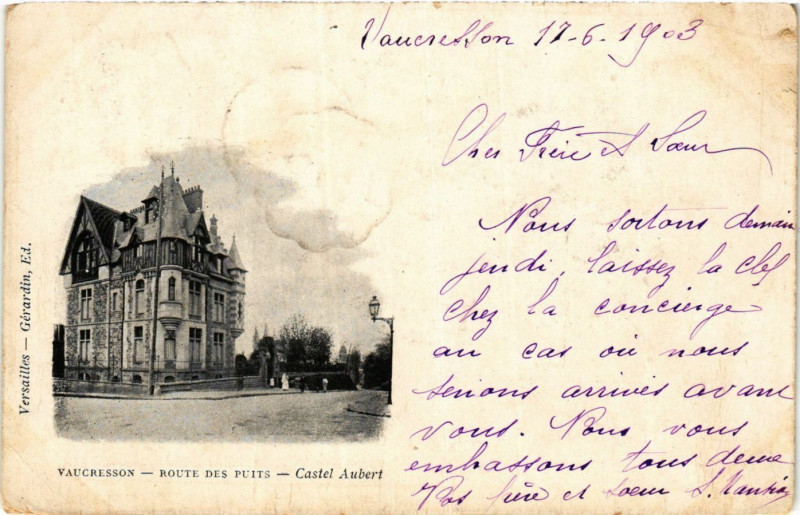 Vaucresson 17-6-1903
Cher Frère et Sœur
Nous sortons demain
jeudi, laissez la clef
chez la concierge
au cas où nous
serions arrivés avant
vous. Nous vous
embrassons tous deux
Vos frère et soeur S.
Versailles — Gérardin, Ed.
VAUCRESSON — ROUTE DES PUITS — Castel Aubert